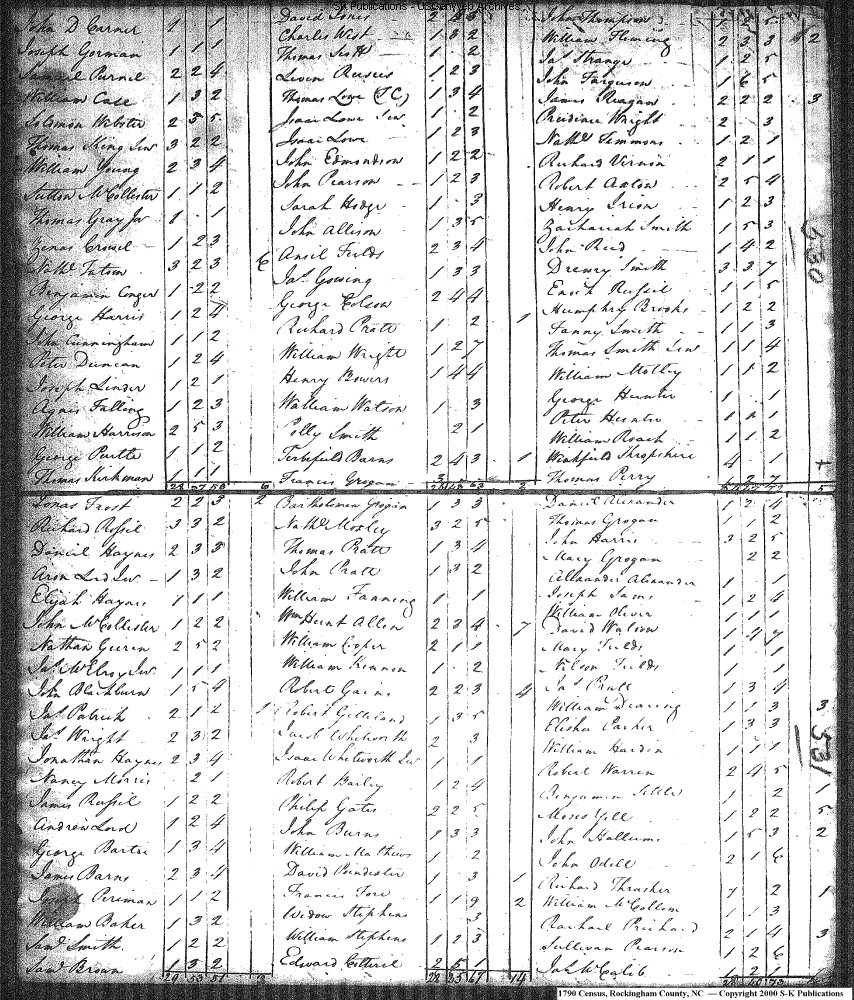 SK Publications - USGenWeb Archives
John D Carner 1 1 1
Joseph Gorman 1 1 1
Samuel Purnel 2 2 4
William Case 1 3 2
Solomon Webster 2 3 5
Thomas King Senr 3 2 2
William Young 2 3 4
Sutton McCollester 1 1 2
Thomas Gray Jr 1 . 1
Zenas Crowel 1 2 3
Nathl Tatom 3 2 3
Benjamin Conger 1 2 2
George Harris 1 2 4
John Cunningham 1 1 2
Peter Duncan 1 2 4
Joseph Linder 1 2 1
Agnis Falling 1 2 3
William Harrison 2 5 3
George Purtle 1 1 2
Thomas Kirkman 1 1 1
David Jones 2 2 3
Charles West 1 3 2
Thomas Scott 1 . 2
Levin 1 2 3
Thomas Lowe (TC) 1 3 4
Isaac Lowe Senr 1 . 2
Isaac Lowe 1 2 3
John Edmondson 1 2 2
John Pearson 1 2 3
Sarah Hodge 1 . 3
John Allison 1 3 5
Ansil Fields 2 3 4
Jas Gowing 1 3 3
George Colson 2 4 4
Richard Pratt 1 . 2 1
William Wright 1 2 7
Henry Bowers 1 4 4
William Watson 1 . 3
Polly Smith 2 1
Barns 2 4 3 1
Francis Grogan
John Thompson
William Fleming 2 3 3 2
Jas Strange 1 2 5
John Farguson 1 6 5
James Reagan 2 2 2 3
Prudince Wright 2 . 3
Nathl Simmons 1 2 1
Richard Vernon 2 1 1
Robert Axton 2 5 4
Henry Irion 1 2 3
Zachariah Smith 1 5 3
John Reed 1 4 2
Drewry Smith 3 3 7
Enoch Russil 1 1 5
Humphry Brooks 1 2 2
Fanny Smith 1 1 3
Thomas Smith Senr 1 1 4
William Motley 1 1 2
George Hunter 1 . 1
Peter Hunter
William Roach 1 1 2
Winkfield Shropshire 4 . 1
Thomas Perry
530
Jonas Frost 2 2 3 2
Richard Rossil 3 3 2
Daniel Haynes 2 3 3
Aron Lord Junr 1 3 2
Elijah Haynes 1 1 1
John McCollister 1 2 2
Nathan Green 2 5 2
Jas McElroy Junr 1 1 1
John Blackburn 1 5 4
Jas Patrick 2 1 2 1
Jas Wright 2 3 2
Jonathan Haynes 2 3 4
Nancy Morris . 2 1
James Russil 1 2 2
Andrew Lord 1 2 4
George Barter 1 3 4
James Barns 2 3 4
Joseph Periman 1 1 2
William Baker 1 3 2
Saml Smith 1 2 2
Saml Brown 1 3 2
Bartholomew Grogan 1 3 3
Nathl Mosley 3 2 5
Thomas Pratt 1 3 4
John Pratt 1 3 2
William Fanning 1 . 1
Wm Hunt Allen 2 3 4 7
William Cooper 2 1 1
William Kennon 1 . 2
Robert Gains 2 2 3 4
Robert Gilleland 1 3 5
Jacob Whitworth 2 . 3
Isaac Whitworth Senr 1
Robert Bailey 1 2 4
Philip Gates 2 2 5
John Burns 1 3 3
William Mathews 1 . 2
David Poindexter 1 . 3 1
Francis Fore 1 1 9 2
Widow Stephens 3
William Stephens 1 2 3
Edward Cotteril 2 5 1
Daniel Alexander 1 2 4
Thomas Grogan 1 1 2
John Harris 3 2 5
Mary Grogan 2 2
Allexander Alexander 1 . 1
Joseph Jams 1 2 4
William Oliver 1 1 1
David Watson 1 4 7
Mary Fields 1 . 1
Nelson Fields 1 . 1
Jas Pratt 1 3 4
William Dearing 1 1 3 3
Elisha Parker 1 3 3
William Hardin 1 1 1
Robert Warren 2 4 5
Benjamin Settle 1 . 2 1
Moses Yell 1 2 2 5
John Hallums 1 5 3 2
John Odell 2 1 6
Richard Thrasher 1 2 1
William McCollom 1 1 3
Rachael Prichard 2 1 4 3
Sullivan Pearson 1 2 6
Jas McCalib 1 2 1
531
1790 Census, Rockingham County, NC — Copyright 2000 S-K Publications